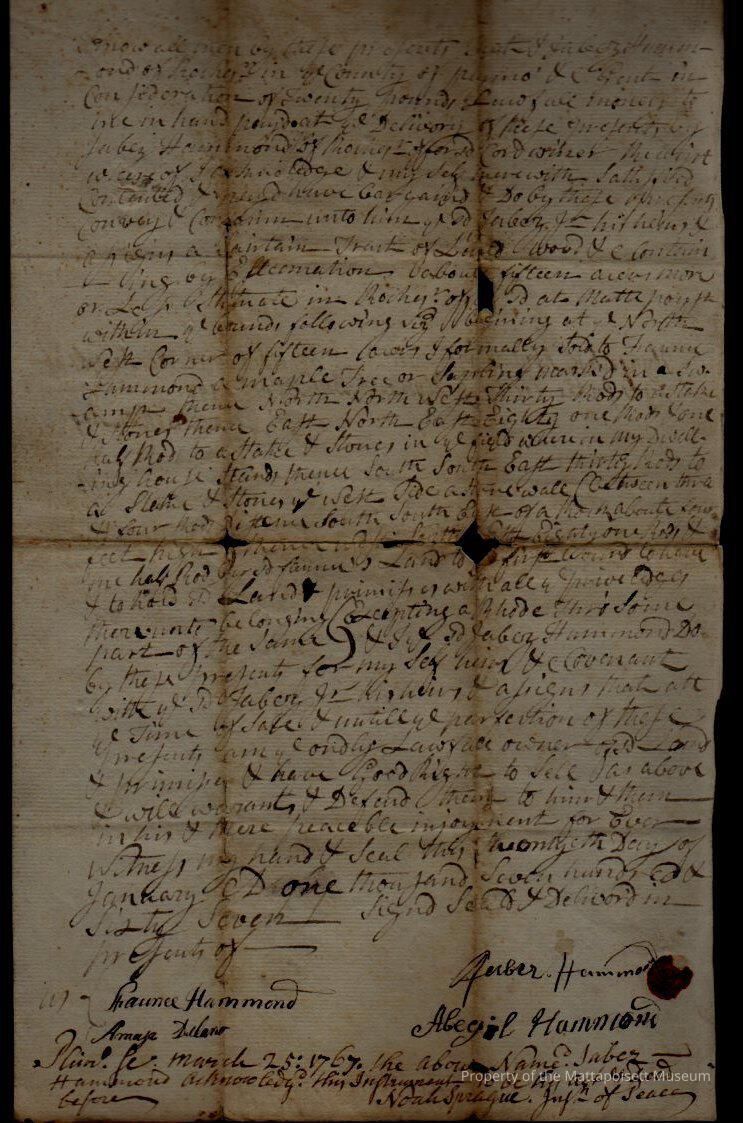 Know all men by these presents that I Jabez Hamm-
ond of Rochestr in ye County of plimo &c Gent in
Consideration of Twenty pounds Lawfull money to
me in hand payd at ye Delivery of these presents by
Jabez Hammond Jr of Rochestr afforsd Cordwiner
Contented & payd have bargaind & Do by these presents
Convey & Confirm unto him ye sd Jabez Jr his heirs &
assigns a Cairtain Tract of Land & Wood &c Contain
ing by Esteemation about fifteen acers more
or Less Sittuate in Rochestr aforsd at Mattepoysett
within ye bounds following viz Begining at ye North
West Corner of fifteen acers I formally sold to Faunce
Hammond a maple Tree or Sapline marked in a Sw-
amp thence North North West Thirty Rods to a Stake
& Stones thence East North East Eighty one Rods & one
half Rod to a Stake & Stones in ye field wherein my Dwell-
ing house stands thence South South East thirty Rods to
a Stake & Stones ye West Side a Stone wall (Between thre
& four Rods South South East of a Rock about four
feet high) thence West South West Eighty one Rods &
one half Rod by sd Faunce's Land to ye first bound to have
& to hold sd Land & primises with all ye priviledges
thereunto belonging (Excepting a Rhode thro Some
part of the Same) & I ye sd Jabez Hammond Do
by these presents for my Self heirs &c Covenant
with ye sd Jabez Jr his heirs & assigns that att
ye Time of Sale & untill ye parfection of these
presents I am ye ondly Lawfull owner of sd Land
& primises & have Good Right to Sell as above
& will warrant & Defend them to him & them
in his & there peaceble injoyment for Ever
Witness my hand & Seal this twentyeth Day of
January AD one thousand Seven hundred &
Sixty Seven Signd Seald & Deliverd in
presents of
Jabez Hammond
Faunce Hammond
Abegil Hammond
Amaz Delano
Plimo Sc. march 25: 1767 the above Named Jabez
Hammond acknowledgd this Instrument to be his act & Deed
before Noah Sprague Just of Peace
Property of the Mattapoisett Museum